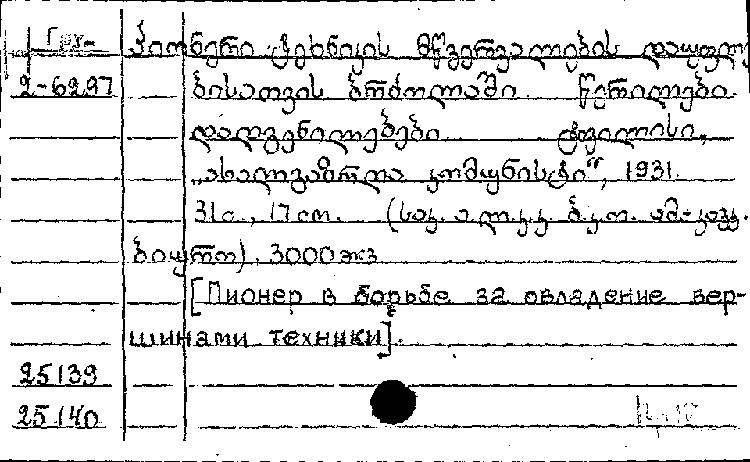 Груз-
პიონერი ტეხნიკის მწვერვალების დაუფლე
2-6297
ბისათვის ბრძოლაში. წერილები.
დადგენილებები. ტფილისი,
„ახალგაზრდა კომუნისტი“, 1931.
31с., 17см. (საკ. ა.ლ.კ.კ. ბ.კ.ო. ამ-კავკ.
ბიურო). 3000 экз
[Пионер в борьбе за овладение вер-
шинами техники].
25139
25140